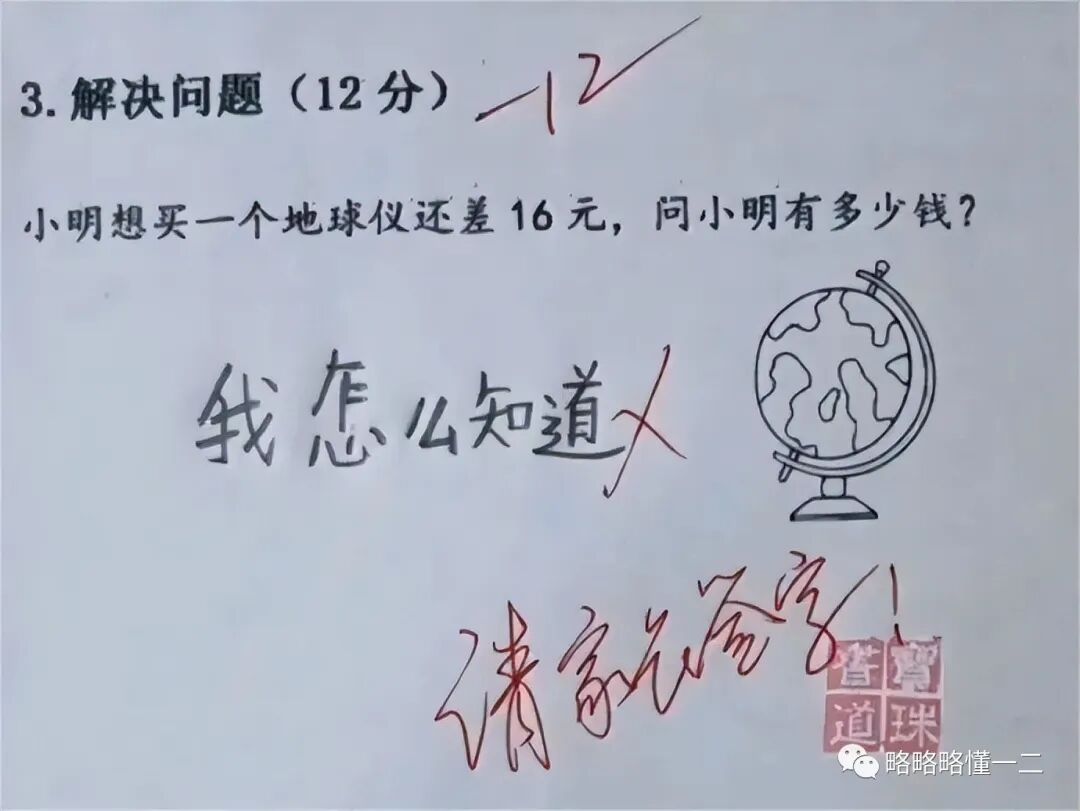 3.解决问题（12分） -12
小明想买一个地球仪还差16元，问小明有多少钱？
我怎么知道
请家长签字！
道 珠
略略略懂一二